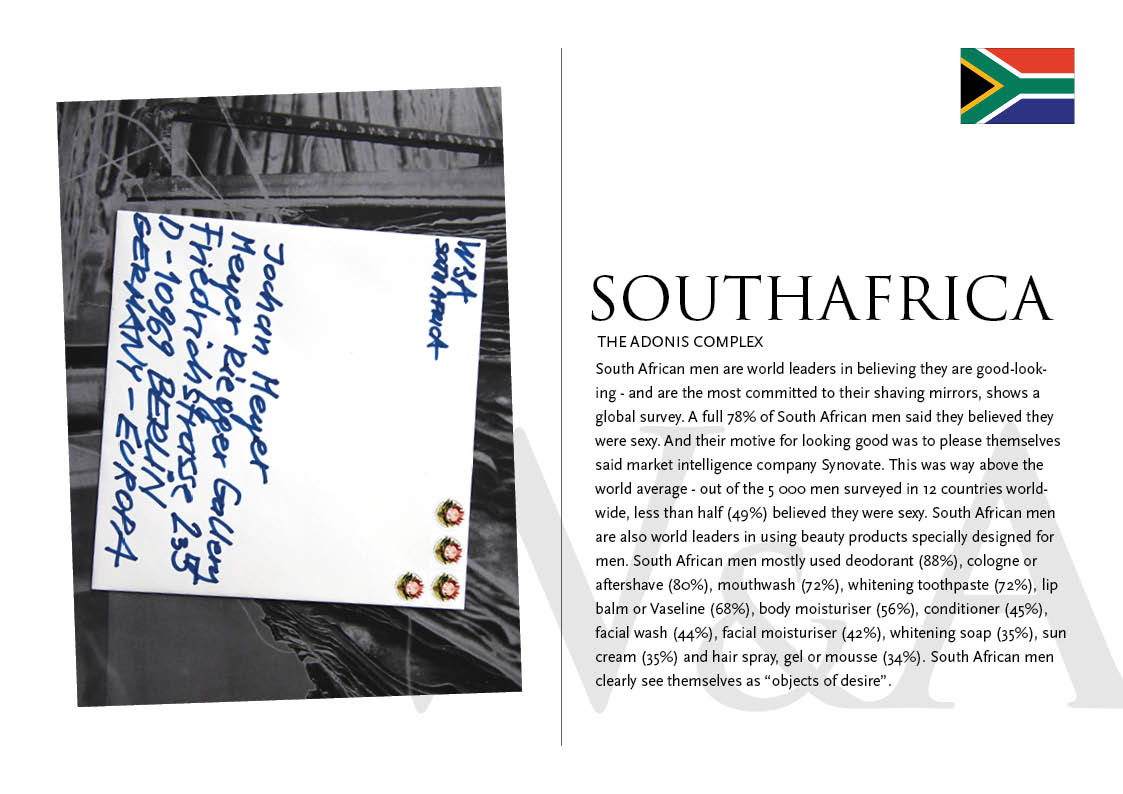 W&A
SOUTH AFRICA
Jochen Meyer
Meyer Riegger Gallery
Friedrichstrasse 235
D-10969 BERLIN
GERMANY-EUROPA
SOUTHAFRICA
THE ADONIS COMPLEX
South African men are world leaders in believing they are good-look-
ing - and are the most committed to their shaving mirrors, shows a
global survey. A full 78% of South African men said they believed they
were sexy. And their motive for looking good was to please themselves
said market intelligence company Synovate. This was way above the
world average - out of the 5 000 men surveyed in 12 countries world-
wide, less than half (49%) believed they were sexy. South African men
are also world leaders in using beauty products specially designed for
men. South African men mostly used deodorant (88%), cologne or
aftershave (80%), mouthwash (72%), whitening toothpaste (72%), lip
balm or Vaseline (68%), body moisturiser (56%), conditioner (45%),
facial wash (44%), facial moisturiser (42%), whitening soap (35%), sun
cream (35%) and hair spray, gel or mousse (34%). South African men
clearly see themselves as “objects of desire”.
W&A